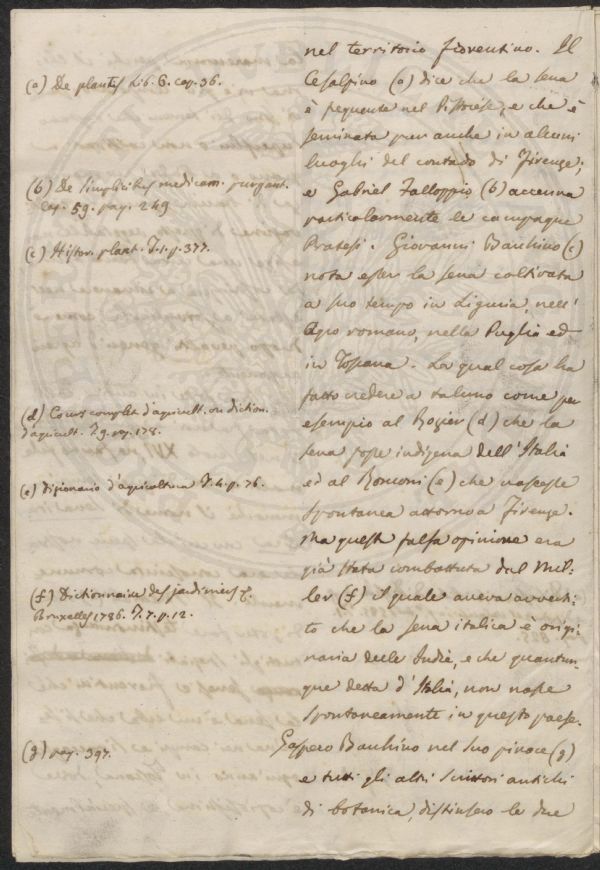 nel territorio fiorentino. Il
(a) De plantis Lib. 6. cap. 36.
Cesalpino (a) dice che la sena
è frequente nel Pistoiese, e che è
seminata pur anche in alcuni
luoghi del contado di Firenze;
(b) De simplicibus medicam. purgant.
cap. 59. pag. 249
e Gabriel Falloppio (b) accenna
particolarmente le campagne
(c) Histor. plant. T. 1. p. 377.
Pratesi. Giovanni Bauhino (c)
nota esser la sena coltivata
a suo tempo in Liguria, nell'
Agro romano, nella Puglia ed
in Toscana. La qual cosa ha
fatto credere a taluno come per
(d) Cours complet d'agricult. ou diction.
d'agricult. T. 9. pag. 178.
esempio al Rozier (d) che la
sena fosse indigena dell'Italia
(e) Dizionario d'agricoltura T. 4. p. 76.
ed al Ronconi (e) che nascesse
spontanea attorno a Firenze.
Ma questa falsa opinione era
già stata combattuta dal Mil:
(f) Dictionnaire des jardiniers
Bruxelles 1786. T. 7. p. 12.
ler (f) il quale aveva avverti:
to che la sena italica è origi:
naria delle Indie, e che quantun:
que detta d'Italia, non nasce
spontaneamente in questo paese.
(g) pag. 397.
Gaspero Bauhino nel suo pinace (g)
e tutti gli altri scrittori antichi
di botanica, distinsero le due